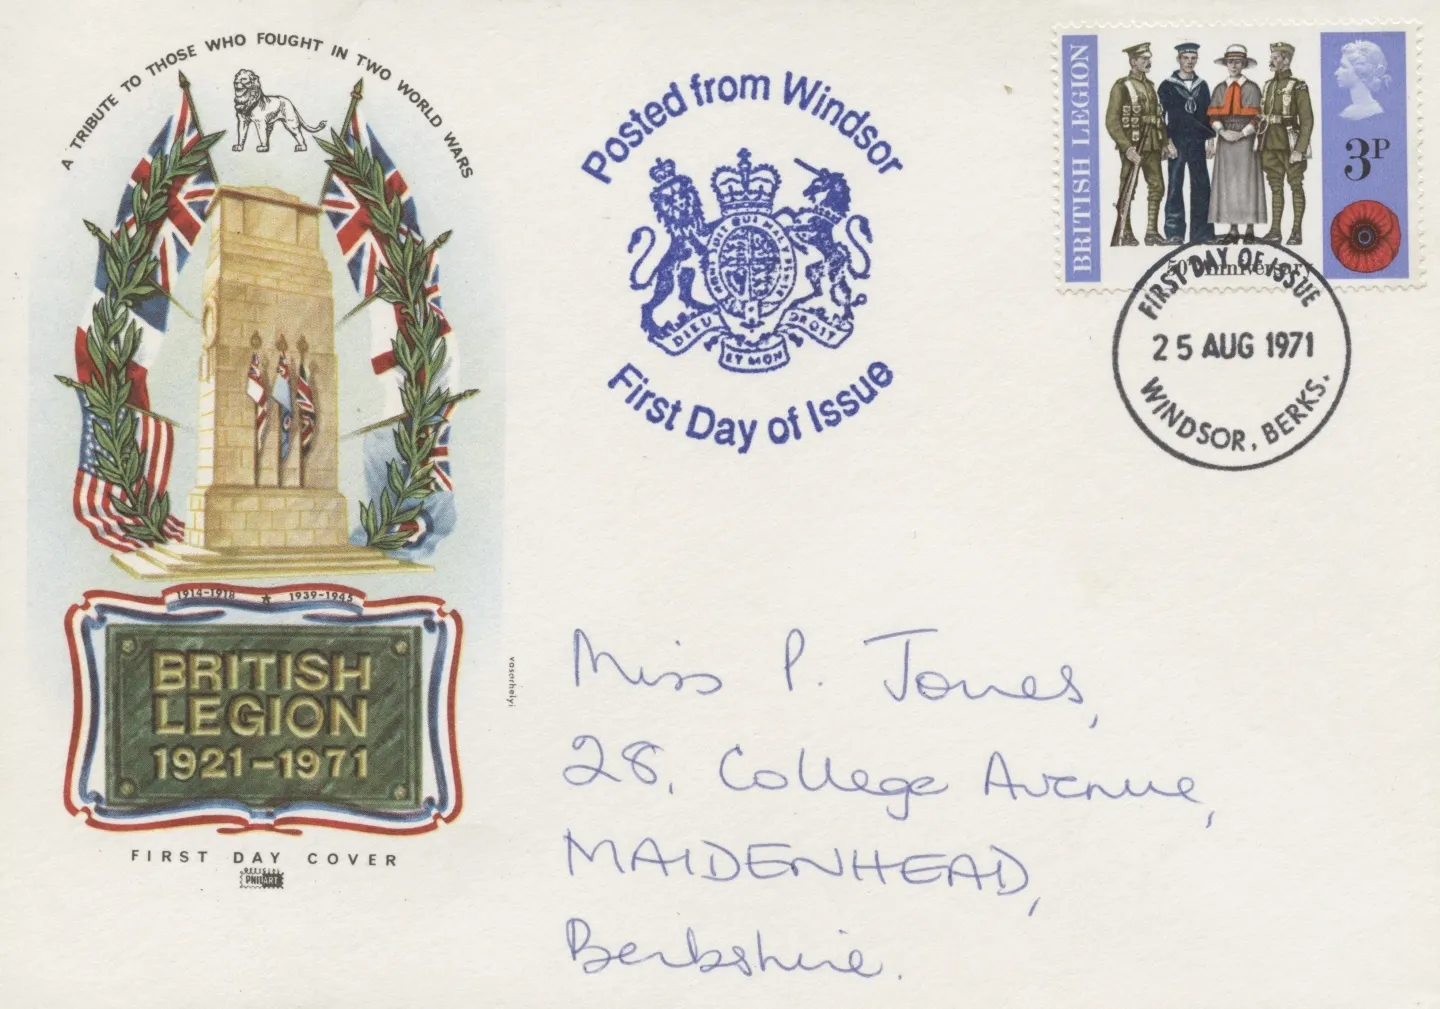 A TRIBUTE TO THOSE WHO FOUGHT IN TWO WORLD WARS
1914-1918 ★ 1939-1945
BRITISH
LEGION
1921-1971
FIRST DAY COVER
OFFICIAL
PHILART
vasarhelyi
Posted from Windsor
HONI SOIT QUI MAL Y PENSE
DIEU ET MON DROIT
First Day of Issue
BRITISH LEGION
3P
50th Anniversary
FIRST DAY OF ISSUE
25 AUG 1971
WINDSOR, BERKS.
Miss P. Jones,
28, College Avenue,
MAIDENHEAD,
Berkshire.